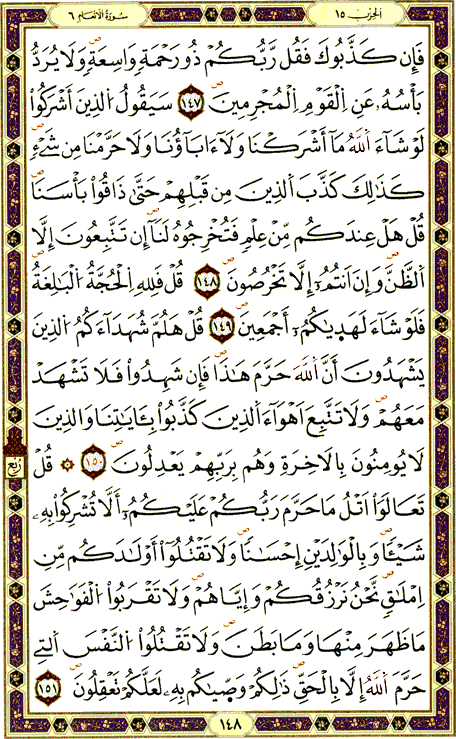 الحزب ١٥
سورة الأنعام ٦
فَإِن كَذَّبُوكَ فَقُل رَّبُّكُمْ ذُو رَحْمَةٍ وَٰسِعَةٍ وَلَا يُرَدُّ
بَأْسُهُۥ عَنِ اِلْقَوْمِ اِلْمُجْرِمِينَ ١٤٧ سَيَقُولُ اُلذِينَ أَشْرَكُوا۟
لَوْ شَآءَ اَللَّهُ مَآ أَشْرَكْنَا وَلَآ ءَابَآؤُنَا وَلَا حَرَّمْنَا مِن شَےْءٍ
كَذَٰلِكَ كَذَّبَ اَلذِينَ مِن قَبْلِهِمْ حَتَّىٰ ذَاقُوا۟ بَأْسَنَا
قُلْ هَلْ عِندَكُم مِّنْ عِلْمٍ فَتُخْرِجُوهُ لَنَآ إِن تَتَّبِعُونَ إِلَّا
اَلظَّنَّ وَإِنَ اَنتُمُۥٓ إِلَّا تَخْرُصُونَ ١٤٨ قُلْ فَلِلهِ اِلْحُجَّةُ اُلْبَٰلِغَةُ
فَلَوْ شَآءَ لَهَدَىٰكُمُۥٓ أَجْمَعِينَ ١٤٩ قُلْ هَلُمَّ شُهَدَآءَكُمُ اُلذِينَ
يَشْهَدُونَ أَنَّ اَللَّهَ حَرَّمَ هَٰذَا فَإِن شَهِدُوا۟ فَلَا تَشْهَدْ
مَعَهُمْ وَلَا تَتَّبِعَ اَهْوَآءَ اَلذِينَ كَذَّبُوا۟ بِـَٔايَٰتِنَا وَالذِينَ
لَا يُومِنُونَ بِالَاخِرَةِ وَهُم بِرَبِّهِمْ يَعْدِلُونَ ١٥٠ ۞ قُلْ
ربع
تَعَالَوَا۟ اَتْلُ مَا حَرَّمَ رَبُّكُمْ عَلَيْكُمُۥٓ أَلَّا تُشْرِكُوا۟ بِهِۦ
شَيْـًٔا وَبِالْوَٰلِدَيْنِ إِحْسَٰنًا وَلَا تَقْتُلُوٓا۟ أَوْلَٰدَكُم مِّنِ
اِمْلَٰقٍ نَّحْنُ نَرْزُقُكُمْ وَإِيَّاهُمْ وَلَا تَقْرَبُوا۟ اُلْفَوَٰحِشَ
مَا ظَهَرَ مِنْهَا وَمَا بَطَنَ وَلَا تَقْتُلُوا۟ اُلنَّفْسَ اَلتِے
حَرَّمَ اَللَّهُ إِلَّا بِالْحَقِّ ذَٰلِكُمْ وَصّىٰكُم بِهِۦ لَعَلَّكُمْ تَعْقِلُونَ ١٥١
١٤٨